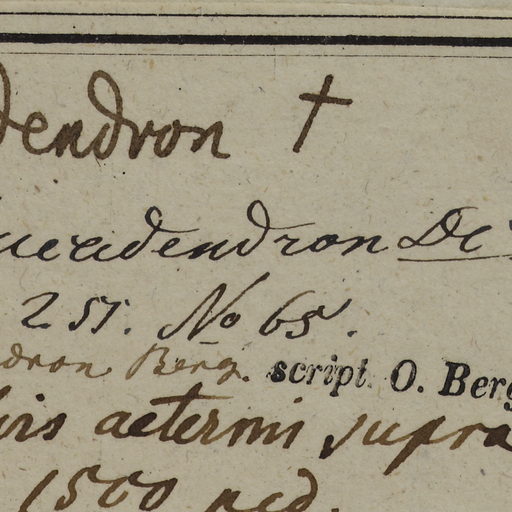 dendron †
ueadendron DC
251. No 65.
dron Berg. script. O. Berg
bis aeterni supra
1500 ped.